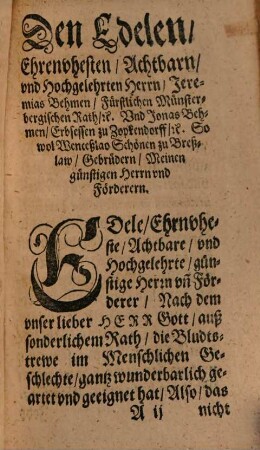 Den Edelen/
Ehrenvhesten / Achtbarn/
vnd Hochgelehrten Herrn / Jere-
mias Behmen / Fürstlichen Münster-
bergischen Rath/ꝛc. Vnd Jonas Beh-
men/ Erbsessen zu Zopkendorff/ꝛc. So
wol Wenceßlao Schönen zu Breß-
law / Gebrüdern / Meinen
günstigen Herrn vnd
Förderern.
EDele/ Ehrnvhe-
ste / Achtbare / vnd
Hochgelehrte / gün-
stige Herrn vñ För-
derer / Nach dem
vnser lieber HERR Gott / auß
sonderlichem Rath / die Bludts-
trewe im Menschlichen Ge-
schlechte / gantz wunderbarlich ge-
artet vnd geeignet hat / Also / das
A ij nicht